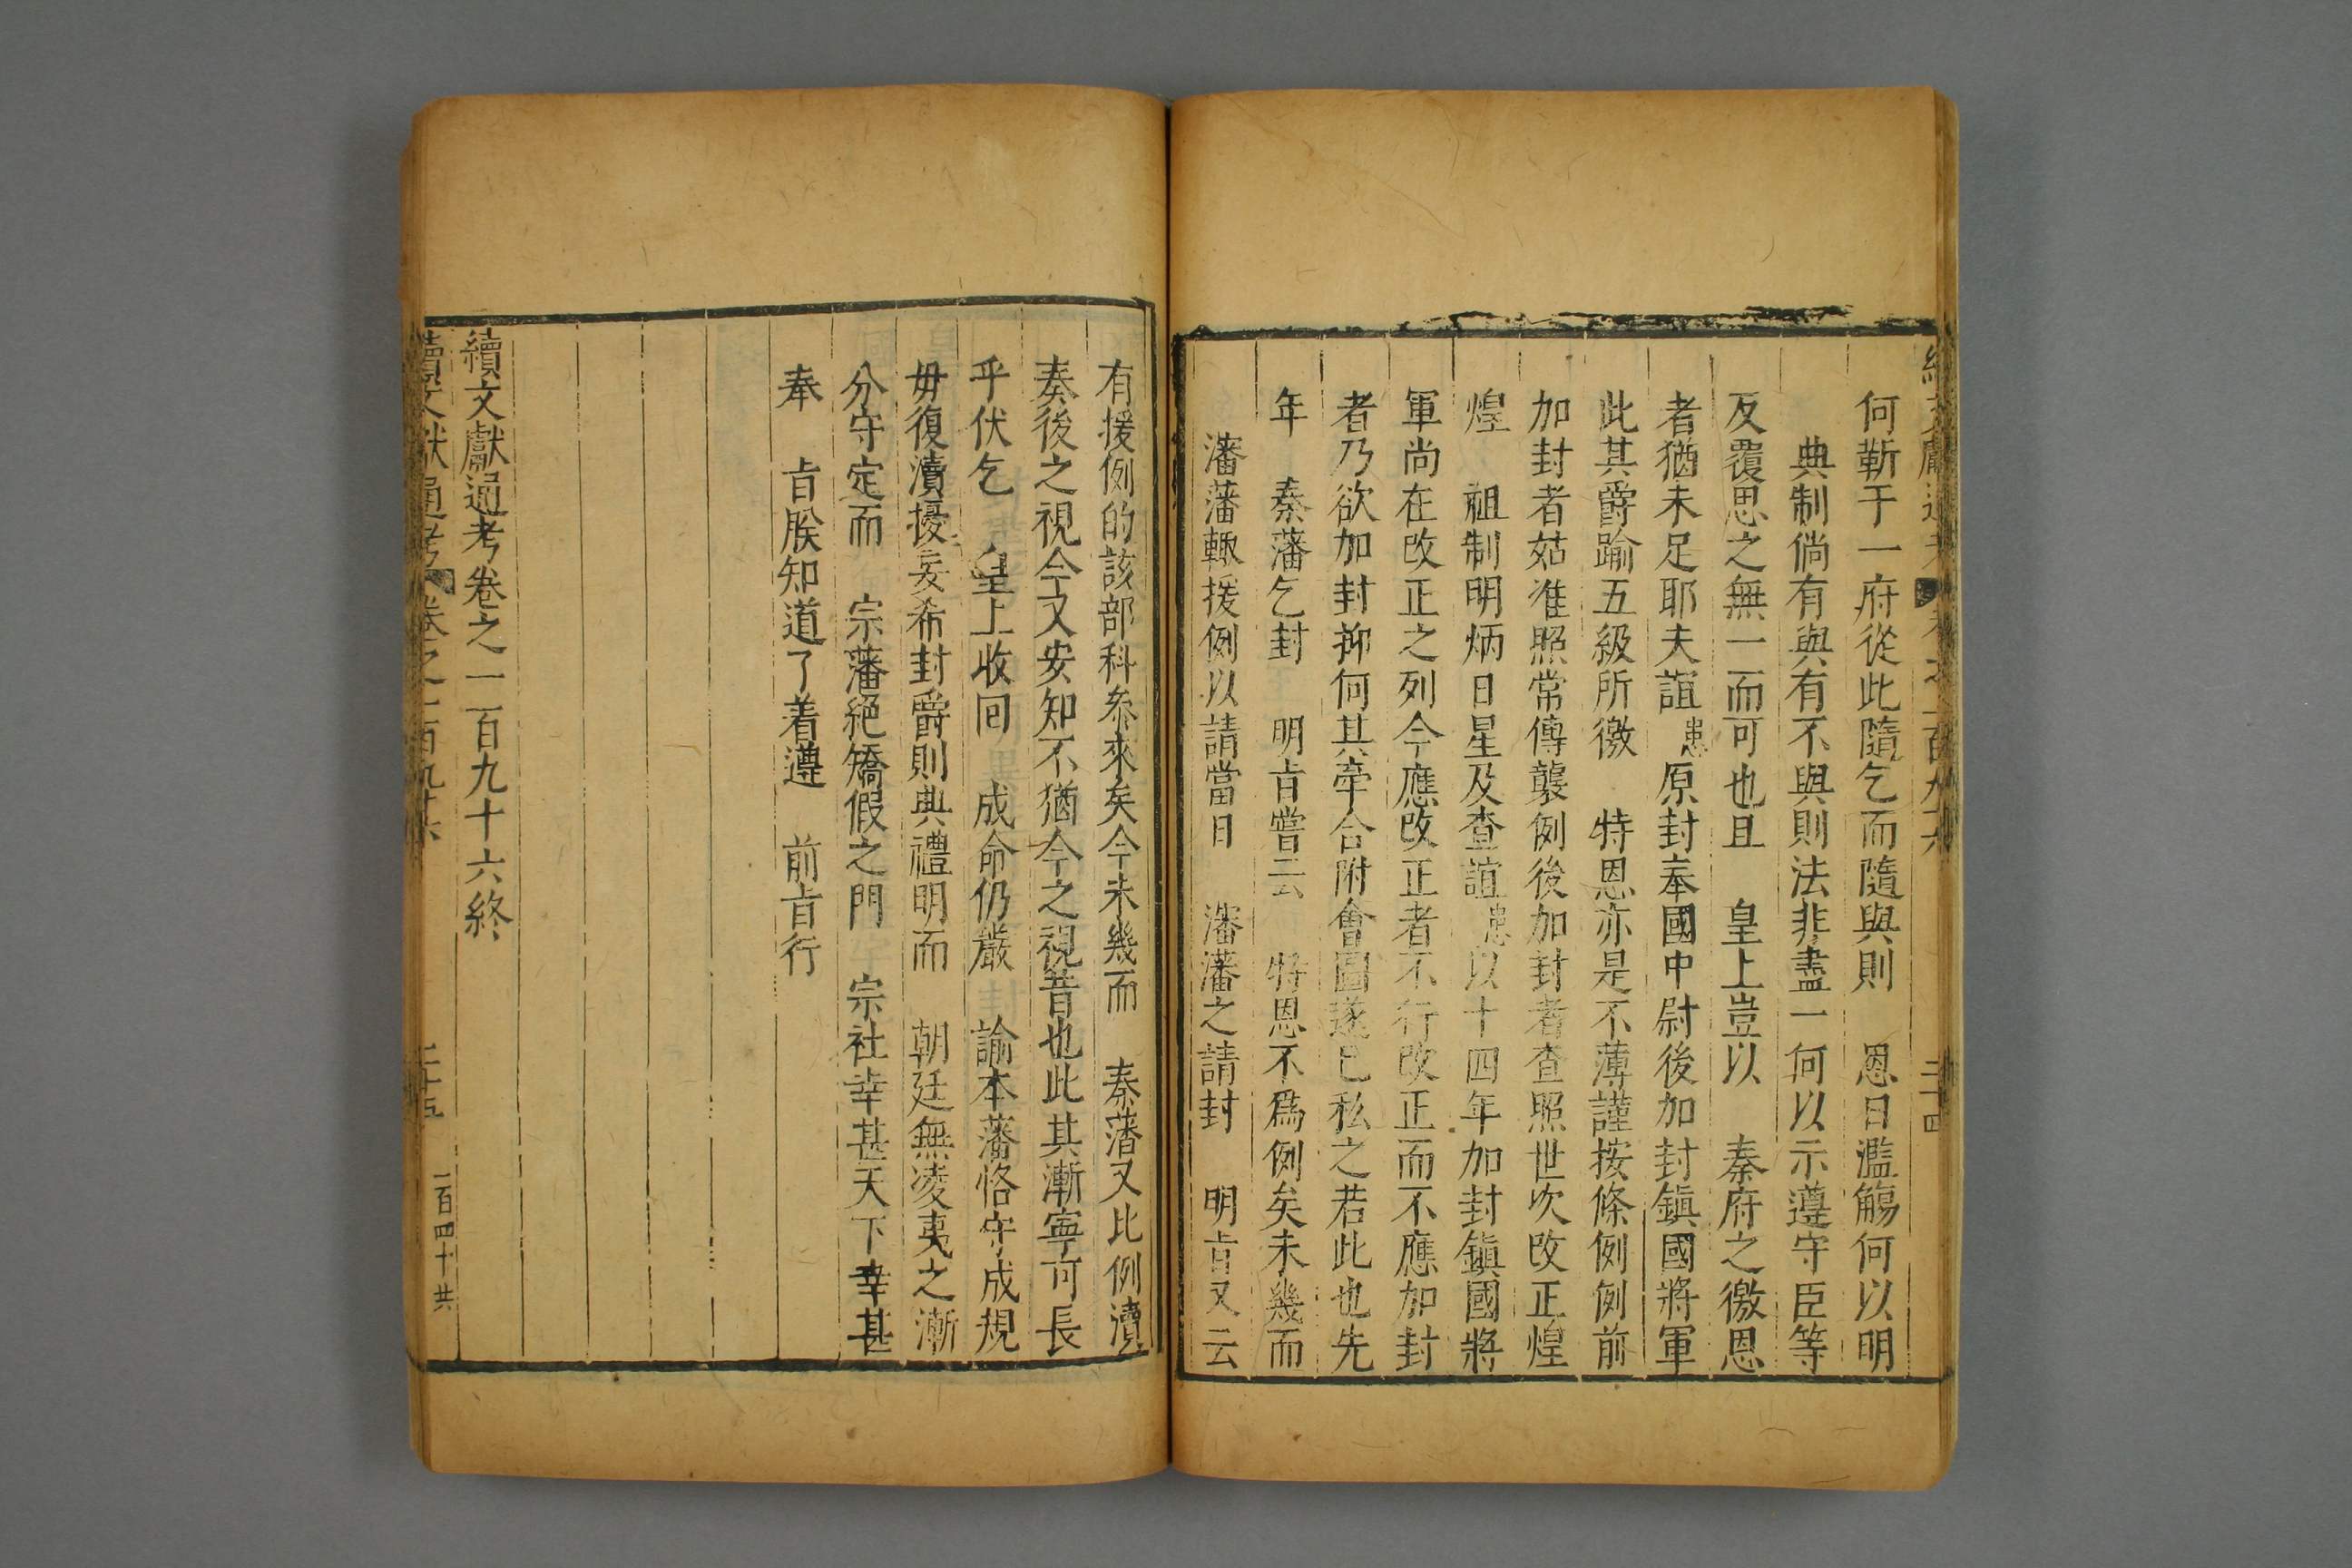 何靳于一府從此隨乞而隨與則　恩日濫觴何以明
典制倘有與有不與則法非盡一何以示遵守臣等
反覆思之無一而可也且　皇上豈以　秦府之徼恩
者猶未足耶夫誼𣻸原封奉國中尉後加封鎮國將軍
此其爵踰五級所徼　特恩亦是不薄謹按條例例前
加封者姑准照常傳襲例後加封者查照世次改正煌
煌　祖制明炳日星及查誼𣻸以十四年加封鎮國將
軍尚在改正之列今應改正者不行改正而不應加封
者乃欲加封抑何其牽合附會圖遂己私之若此也先
年　秦藩乞封　明旨嘗云　特恩不爲例矣未幾而
瀋藩輙援例以請當日　瀋藩之請封　明旨又云
有援例的該部科參來矣今未幾而　秦藩又比例瀆
奏後之視今又安知不猶今之視昔也此其漸寧可長
乎伏乞　皇上收回　成命仍嚴　諭本藩恪守成規
毋復瀆擾妄希封爵則典禮明而　朝廷無凌夷之漸
分守定而　宗藩絕矯假之門　宗社幸甚天下幸甚
奉　旨朕知道了着遵　前旨行
續文獻通考卷之一百九十六終
續文獻通考　卷之一百九十六　二十五　一百四十共